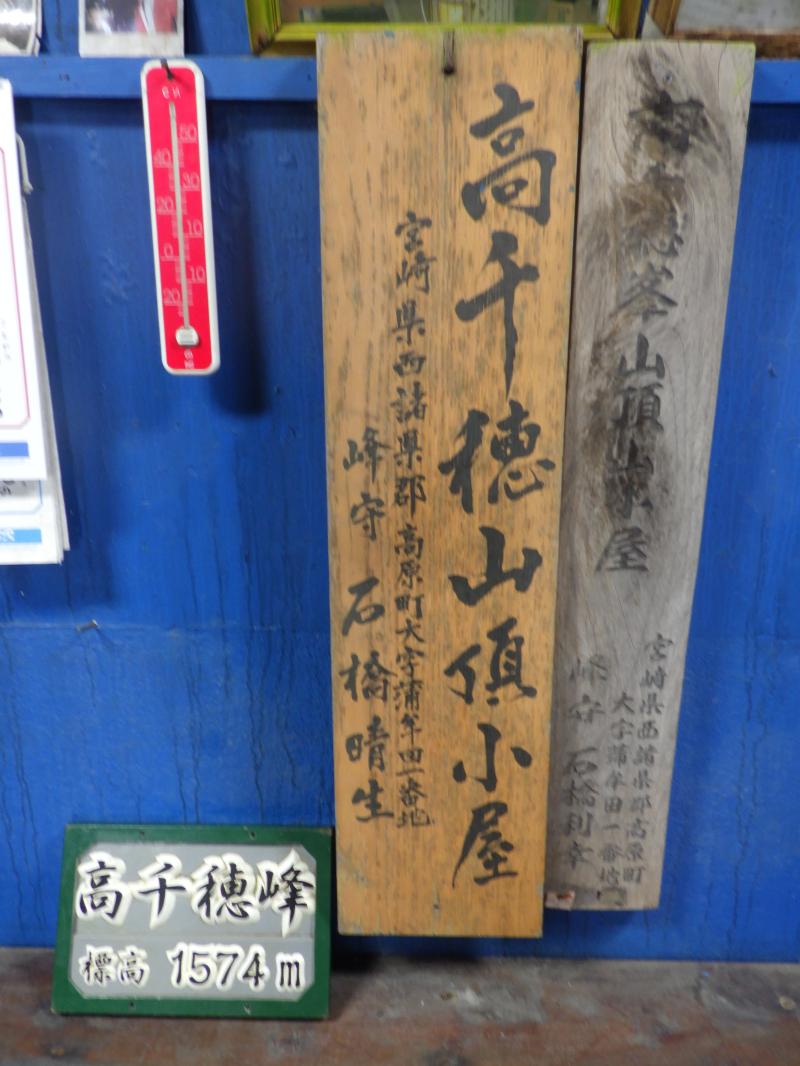 高千穂峯山頂小屋
宮崎県西諸県郡高原町
大字蒲牟田一番地
峰守 石橋利幸
高千穂山頂小屋
宮崎県西諸県郡高原町大字蒲牟田一番地
峰守 石橋晴生
50
40
30
20
10
0
10
20
高千穂峰
標高 1574m